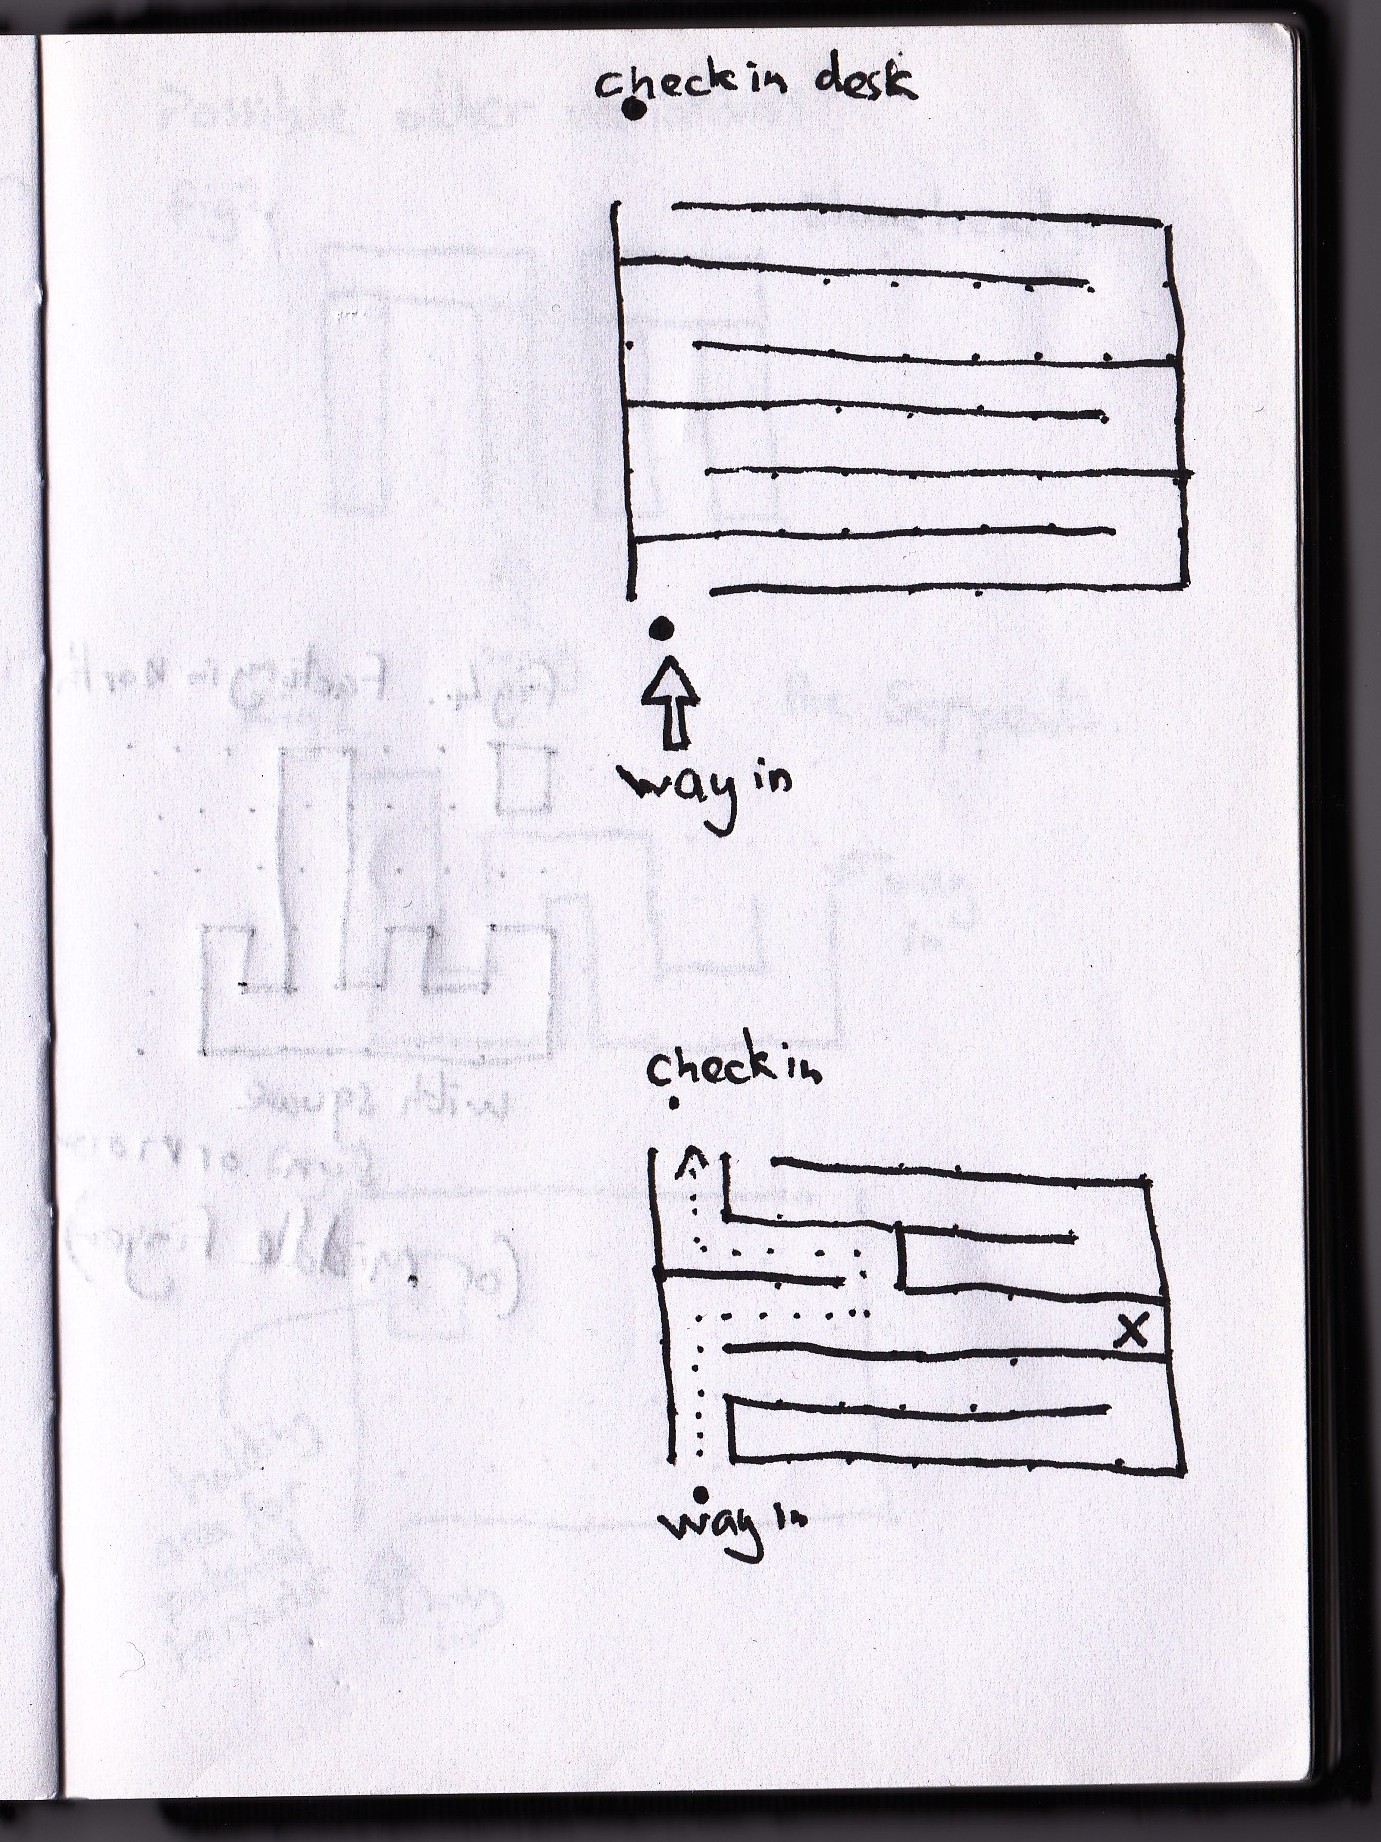 checkin desk
way in
checkin
X
way in